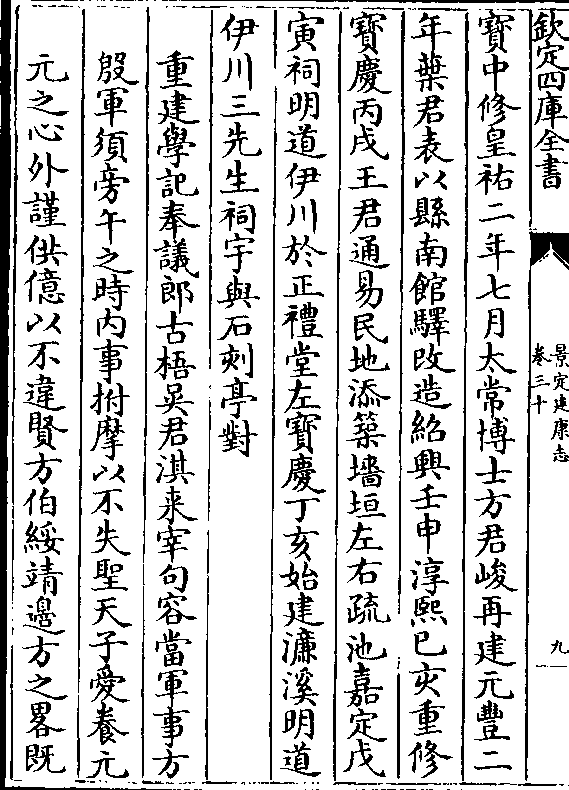 欽定四庫全書
景定建康志
卷三十
九
寳中修皇祐二年七月太常博士方君峻再建元豐二
年葉君表以縣南館驛改造紹興壬申淳熙已亥重修
寳慶丙戌王君通易民地添築墻垣左右疏池嘉定戊
寅祠明道伊川於正禮堂左寳慶丁亥始建濂溪明道
伊川三先生祠宇與石刻亭對
重建學記奉議郎古梧吳君淇来宰句容當軍事方
殷軍須旁午之時内事拊摩以不失聖天子愛養元
元之心外謹供億以不違賢方伯綏靖邊方之畧既